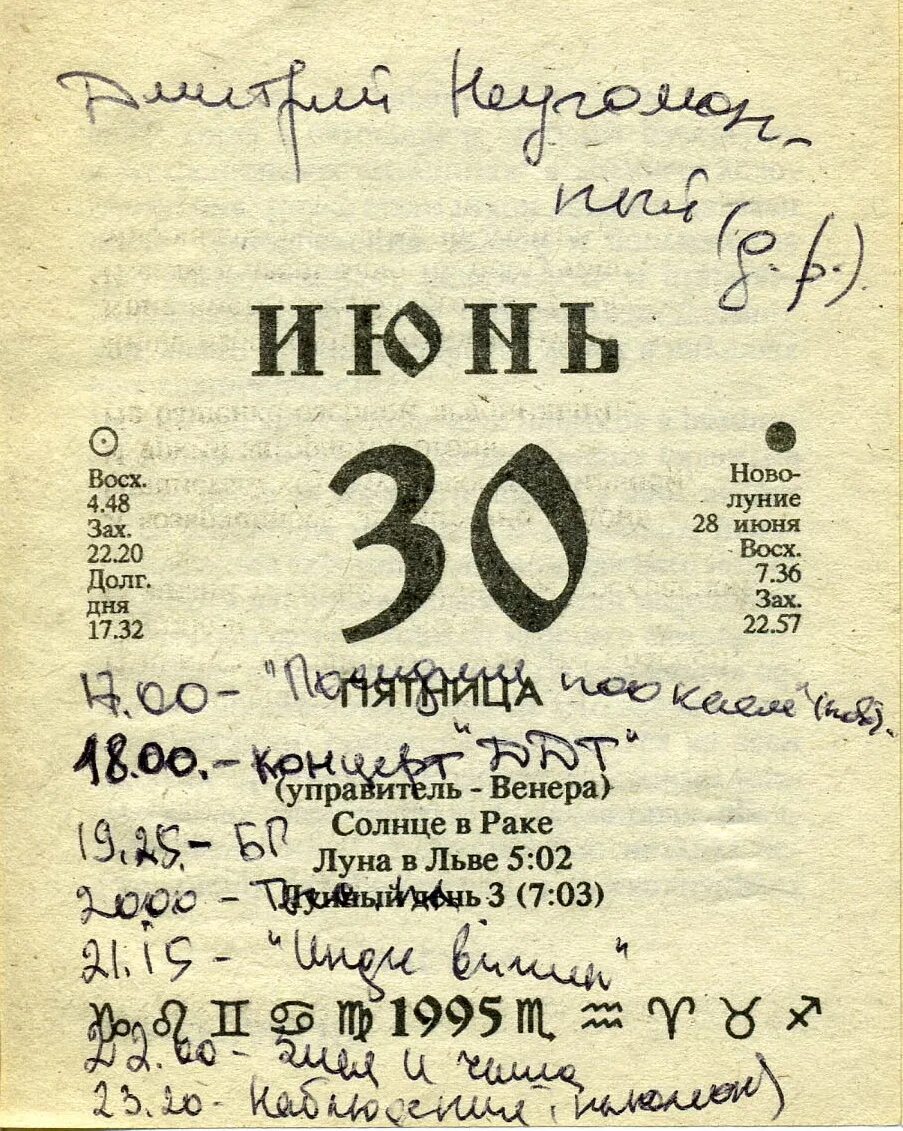 Дмитрий Неугомон-
ный
(д.р.).
ИЮНЬ
30
Восх.
4.48
Зах.
22.20
Долг.
дня
17.32
Ново-
луние
28 июня
Восх.
7.36
Зах.
22.57
ПЯТНИЦА
17.00 - "
18.00. - концерт "ДДТ"
(управитель - Венера)
Солнце в Раке
19.25. - БГ
Луна в Льве 5:02
Лунный день 3 (7:03)
20.00 -
21.15 - "
♑ ♌ ♊ ♋ ♍ 1995 ♏ ♒ ♈ ♉ ♐
22.00 - Змея и чаша
23.20 - Наблюдения